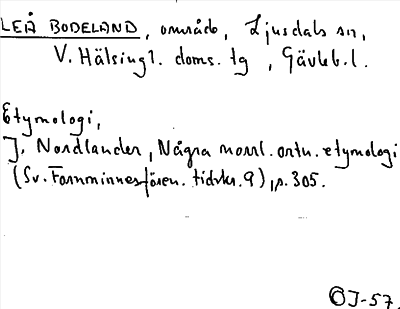 LEÅ BODELAND, område, Ljusdals sn,
V. Hälsingl. doms. tg, Gävleb. l.
Etymologi,
J. Nordlander, Några norrl. ortn. etymologi
(Sv. Fornminnesfören. tidskr. 9), p. 305.
OJ-57.